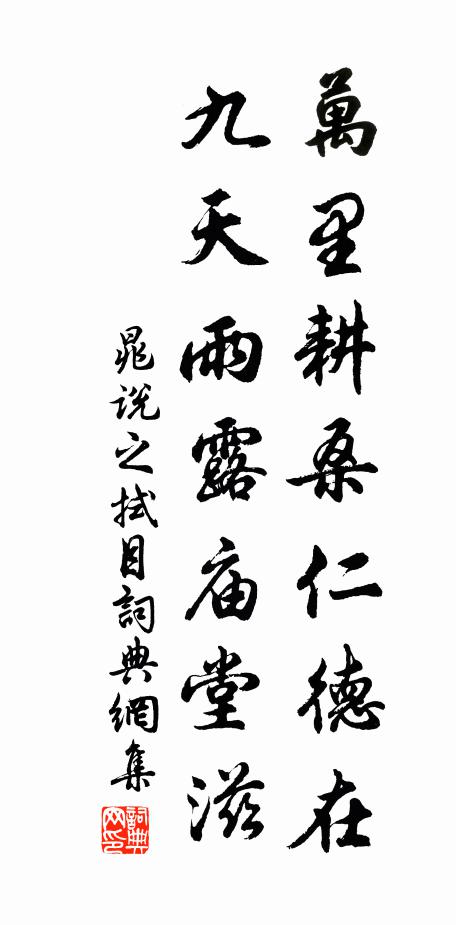 萬里耕桑仁德在
九天雨露庙堂滋
晁说之拭目詞典網集
詞典
网印